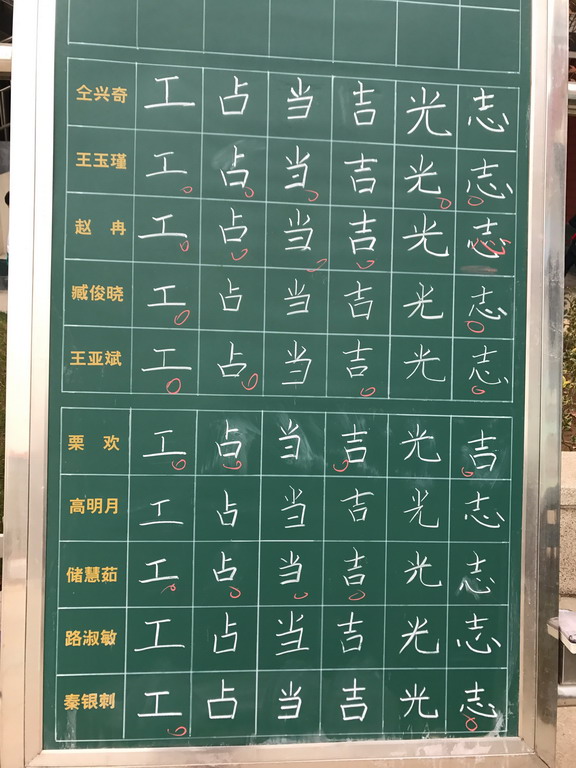 仝兴奇 工 占 当 吉 光 志
王玉瑾 工 占 当 吉 光 志
赵冉 工 占 当 吉 光 志
臧俊晓 工 占 当 吉 光 志
王亚斌 工 占 当 吉 光 志
栗欢 工 占 当 吉 光 吉
高明月 工 占 当 吉 光 志
储慧茹 工 占 当 吉 光 志
路淑敏 工 占 当 吉 光 志
秦银刺 工 占 当 吉 光 志